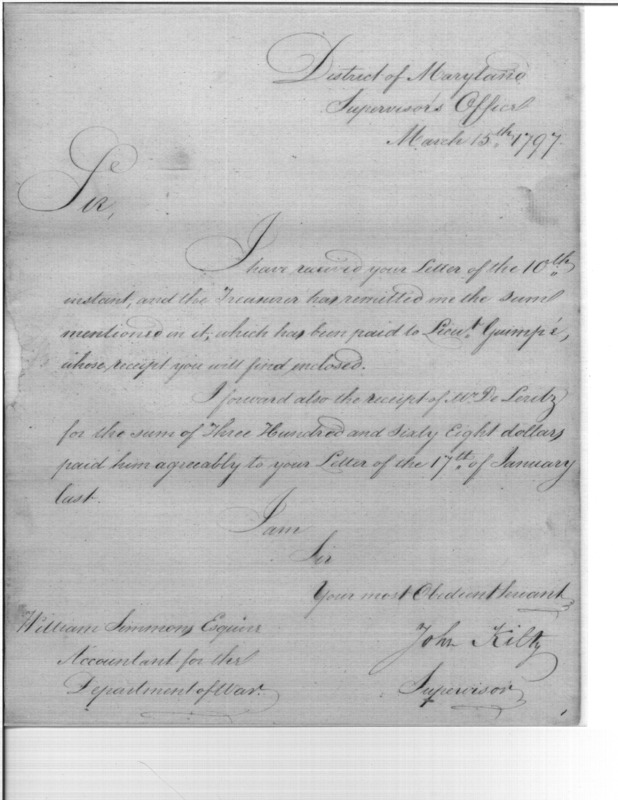 District of Maryland
Supervisor's Office
March 15th 1797.
Sir,
I have received your Letter of the 10th
instant, and the Treasurer has remitted me the sum
mentioned in it, which has been paid to Lieut. Guimpé,
whose receipt you will find enclosed.
I forward also the receipt of Mr. De Leritz
for the sum of Three Hundred and Sixty Eight dollars
paid him agreeably to your Letter of the 17th. of January
last.
I am
Sir
Your most Obedient Servant
William Simmons Esquire
Accountant for the
Department of War.
John Kilty
Supervisor